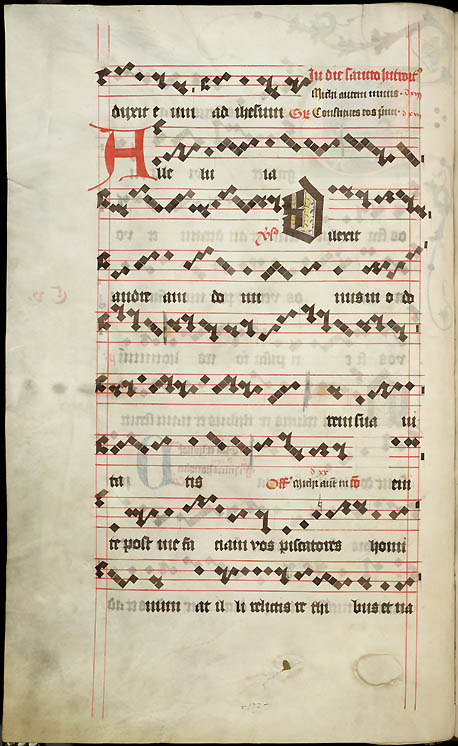 In die sancto Introit⁹
Michi autem nimis · dxxj
duxit e um ad ihesum Gr Constitues eos prin · dxxj
Alle lu ia
Vs Dilexit
andre am do mi nus in o do
rem sua ui
ta tis Off Michi aut in
dxx
Co eni
te post me fa ciam vos piscatores homi
num at il li relictis re thi bus et na
· 172 -